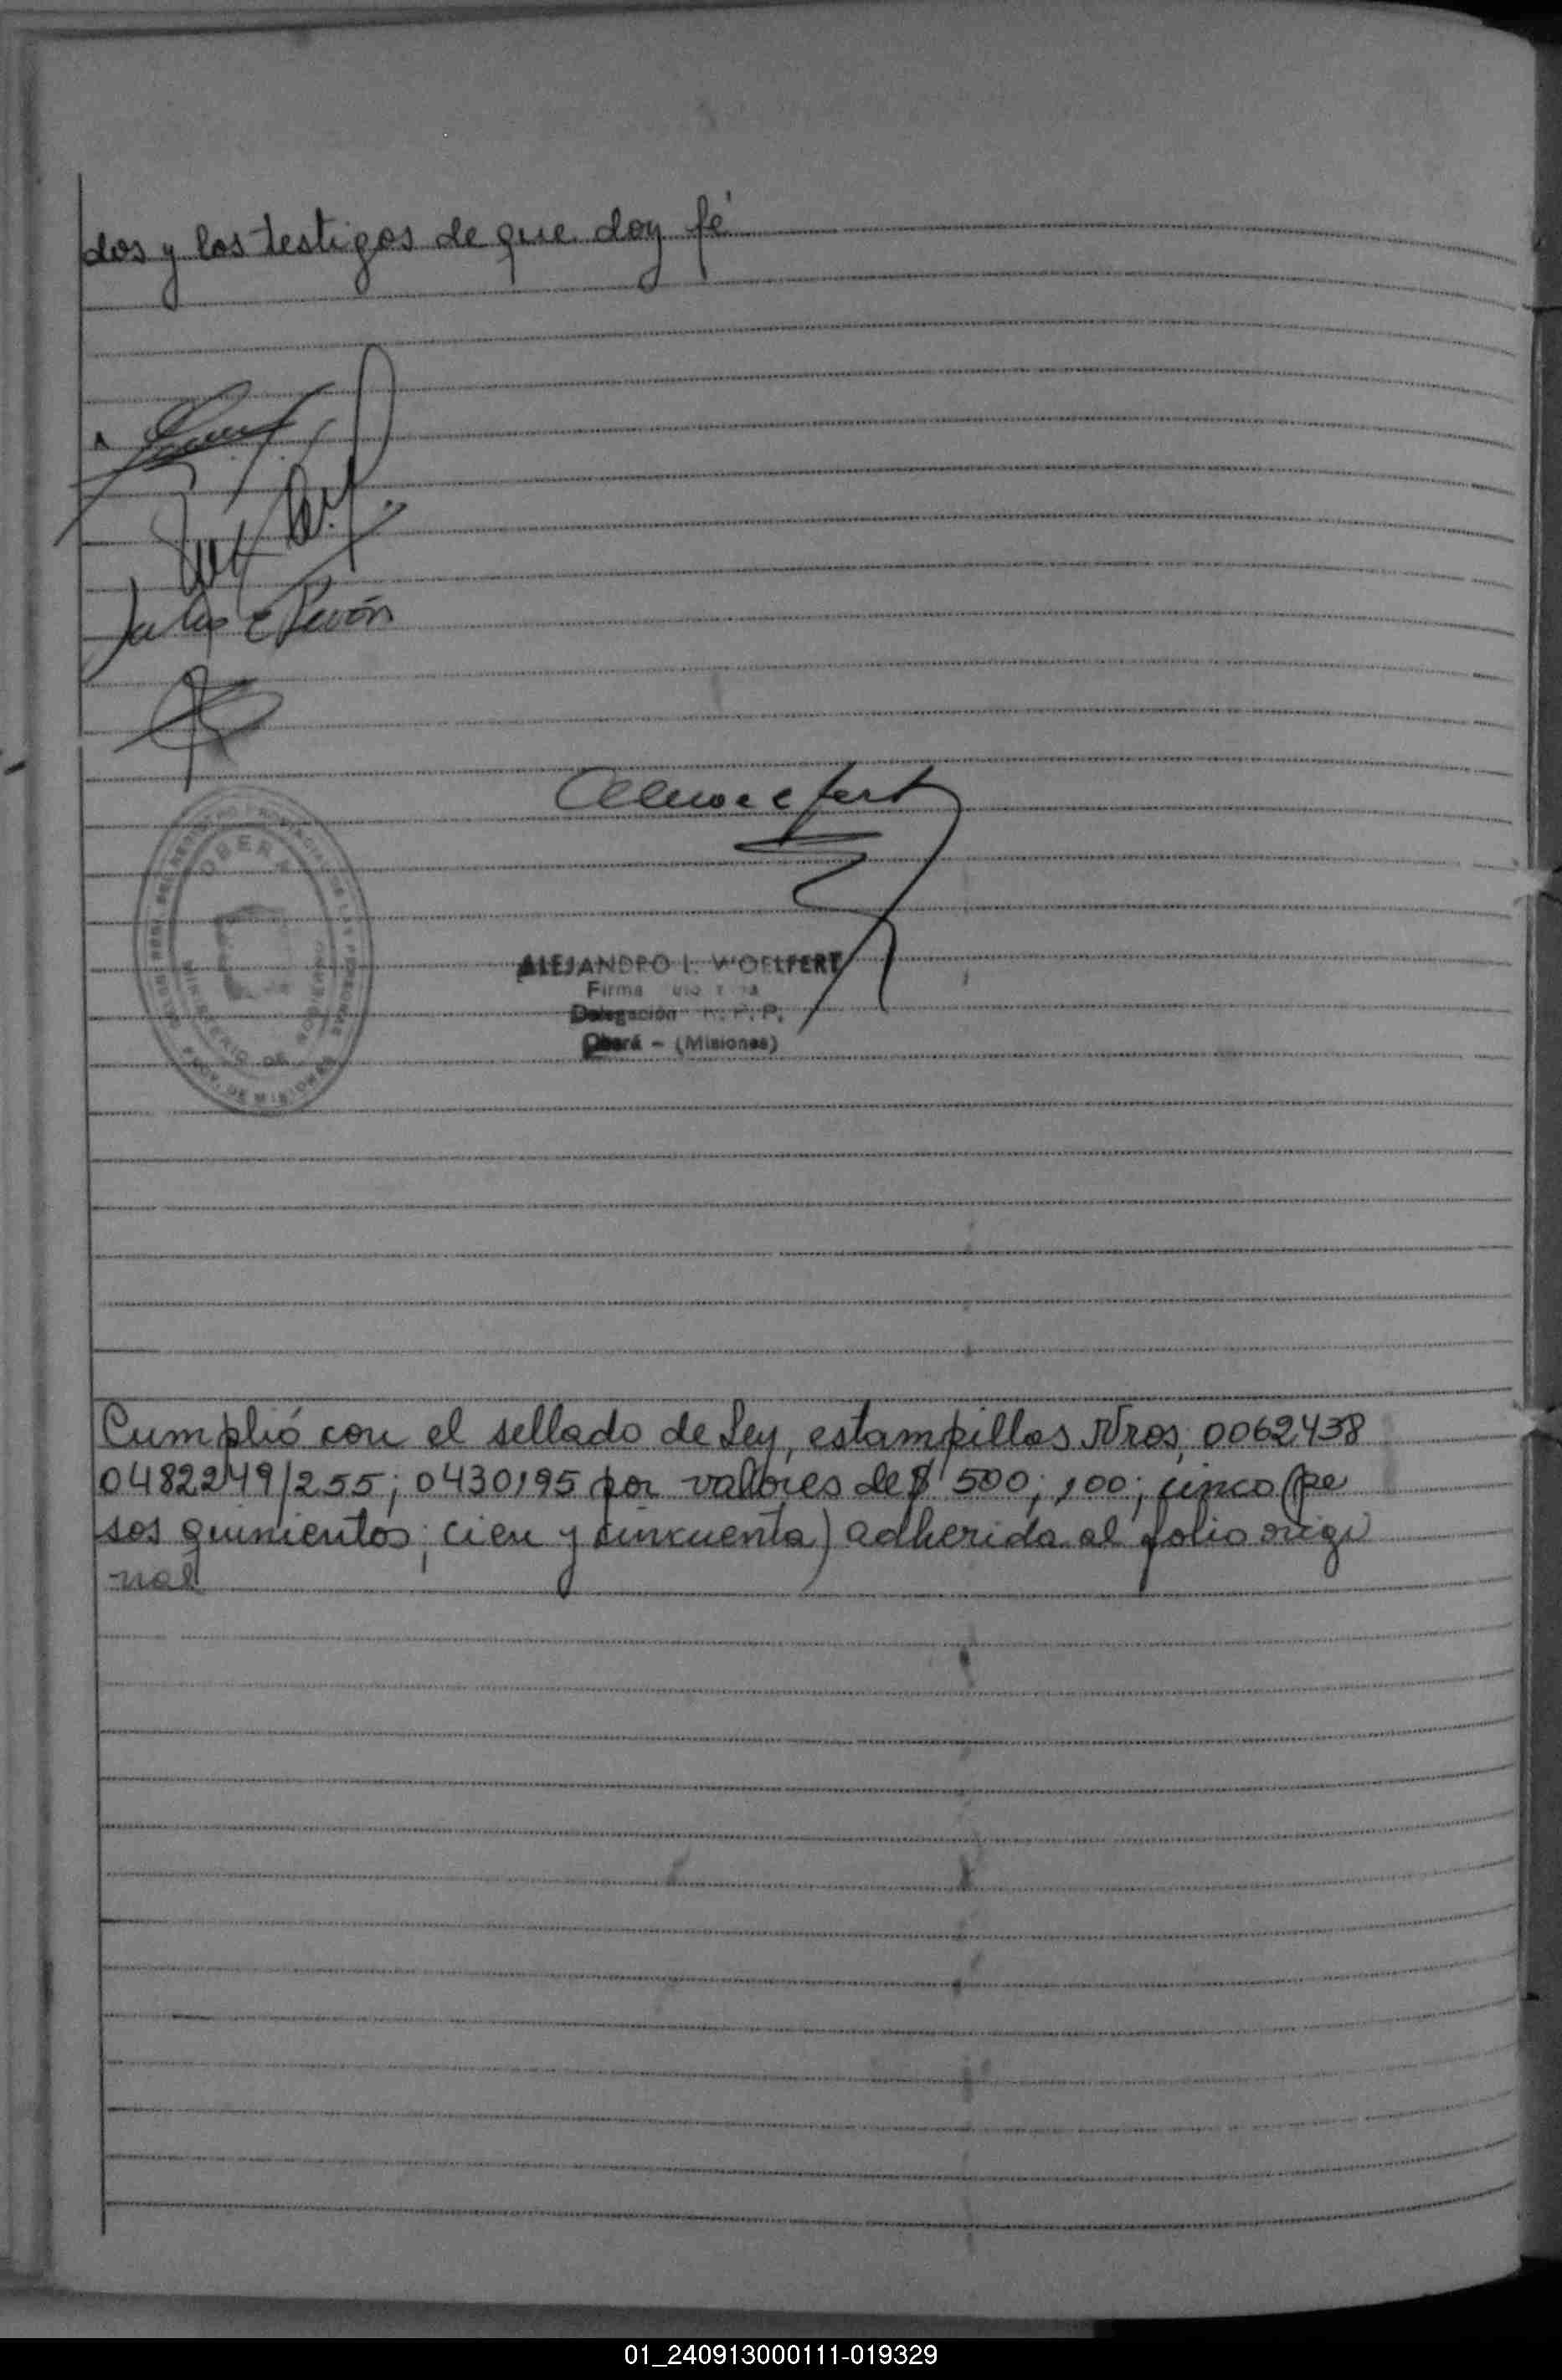 dos y los testigos de que doy fé
Julio E Pavón
OBERA
MINISTERIO DE GOBIERNO
PROV. DE MISIONES
ALEJANDRO I. WOELFERT
Firma
Delegación R. P. P.
Oberá - (Misiones)
Cumplió con el sellado de Ley, estampillas Nros 0062438
0482249/255; 0430195 por valores de $ 500; 100; cinco (pe
sos quinientos; cien y cincuenta) adherida al folio origi
nal
01_240913000111-019329